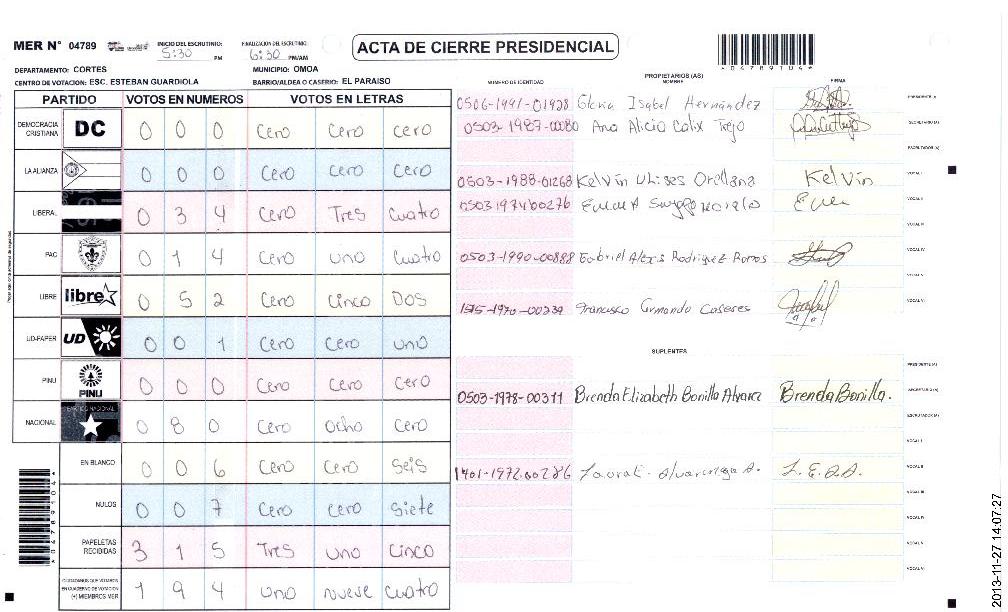 MER N° 04789
INICIO DEL ESCRUTINIO: 5:30 PM
FINALIZACIÓN DEL ESCRUTINIO: 6:30 PM/AM
ACTA DE CIERRE PRESIDENCIAL
*04789104*
DEPARTAMENTO: CORTES
MUNICIPIO: OMOA
CENTRO DE VOTACION: ESC. ESTEBAN GUARDIOLA
BARRIO/ALDEA O CASERIO: EL PARAISO
PARTIDO VOTOS EN NUMEROS VOTOS EN LETRAS
DEMOCRACIA CRISTIANA DC 0 0 0 Cero Cero Cero
LA ALIANZA 0 0 0 Cero Cero Cero
LIBERAL 0 3 4 Cero Tres Cuatro
PAC 0 1 4 Cero uno Cuatro
LIBRE libre 0 5 2 Cero Cinco Dos
UD-FAPER UD 0 0 1 Cero Cero uno
PINU PINU 0 0 0 Cero Cero Cero
NACIONAL 0 8 0 Cero Ocho Cero
EN BLANCO 0 0 6 Cero Cero Seis
NULOS 0 0 7 Cero Cero Siete
PAPELETAS RECIBIDAS 3 1 5 Tres uno Cinco
CIUDADANOS QUE VOTARON EN CUADERNO DE VOTACION (+) MIEMBROS MER 1 9 4 uno nueve cuatro
NUMERO DE IDENTIDAD
PROPIETARIOS (AS)
NOMBRE
FIRMA
0506-1991-01928 Gloria Isabel Hernández PRESIDENTE (A)
0503-1987-00080 Ana Alicia Calix Trejo SECRETARIO (A)
ESCRUTADOR (A)
0503-1988-01268 Kelvin Ulises Orellana Kelvin VOCAL I
0503197400276 VOCAL II
VOCAL III
0503-1990-00888 Gabriel Alexis Rodriguez Ramos VOCAL IV
VOCAL V
1515-1970-00239 Francisco Armando Caseres VOCAL VI
SUPLENTES
PRESIDENTE (A)
0503-1978-00311 Brenda Elizabeth Bonilla Alvarez Brenda Bonilla. SECRETARIO (A)
ESCRUTADOR (A)
VOCAL I
1401-1972.00286 L.E.A.A. VOCAL II
VOCAL III
VOCAL IV
VOCAL V
VOCAL VI
*04789104*
2013-11-27 14:07:27